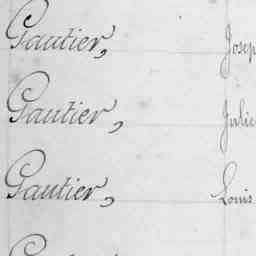 Gautier, Josep
Gautier, Julie
Gautier, Louis